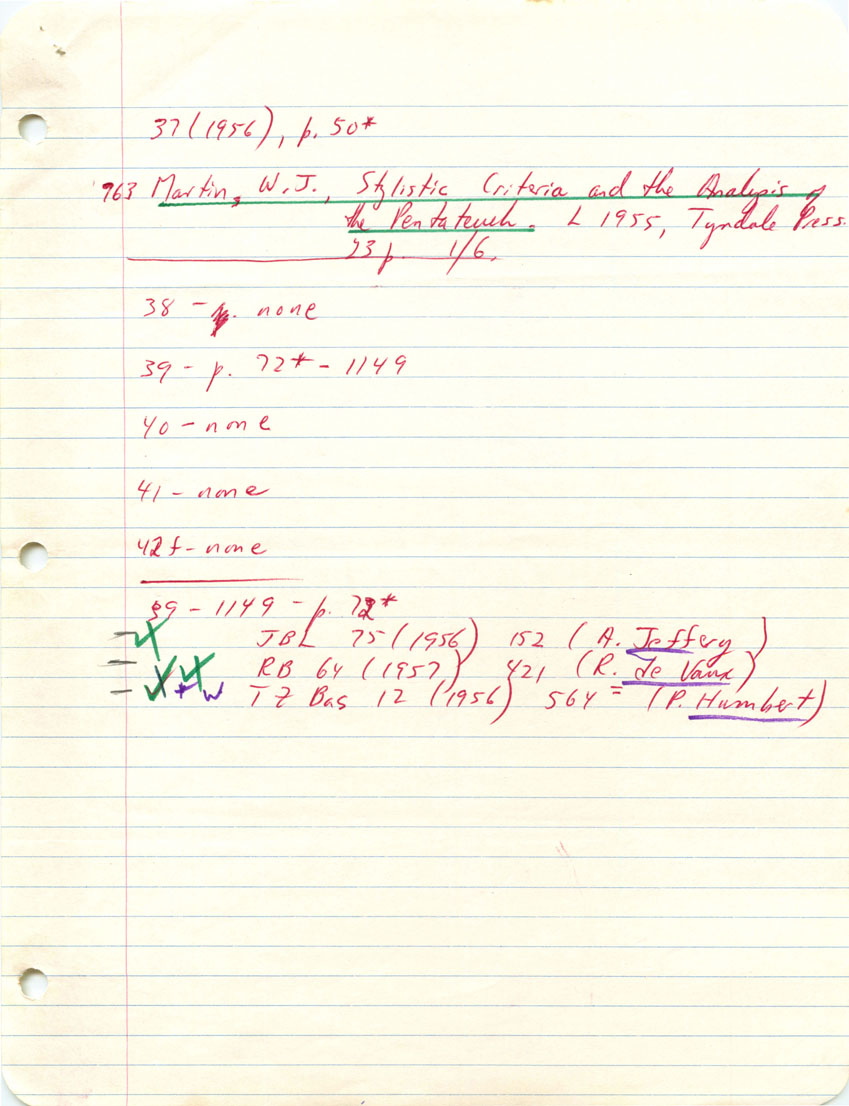 37 (1956), p. 50*
763 Martin, W.J., Stylistic Criteria and the Analysis of
the Pentateuch. L 1955, Tyndale Press.
23 p. 1/6.
38 - p. none
39 - p. 72* - 1149
40 - none
41 - none
42f - none
39 - 1149 - p. 72*
JBL 75 (1956) 152 (A. Jeffery)
RB 64 (1957) 421 (R. de Vaux)
+ W TZ Bas 12 (1956) 564 = (P. Humbert)